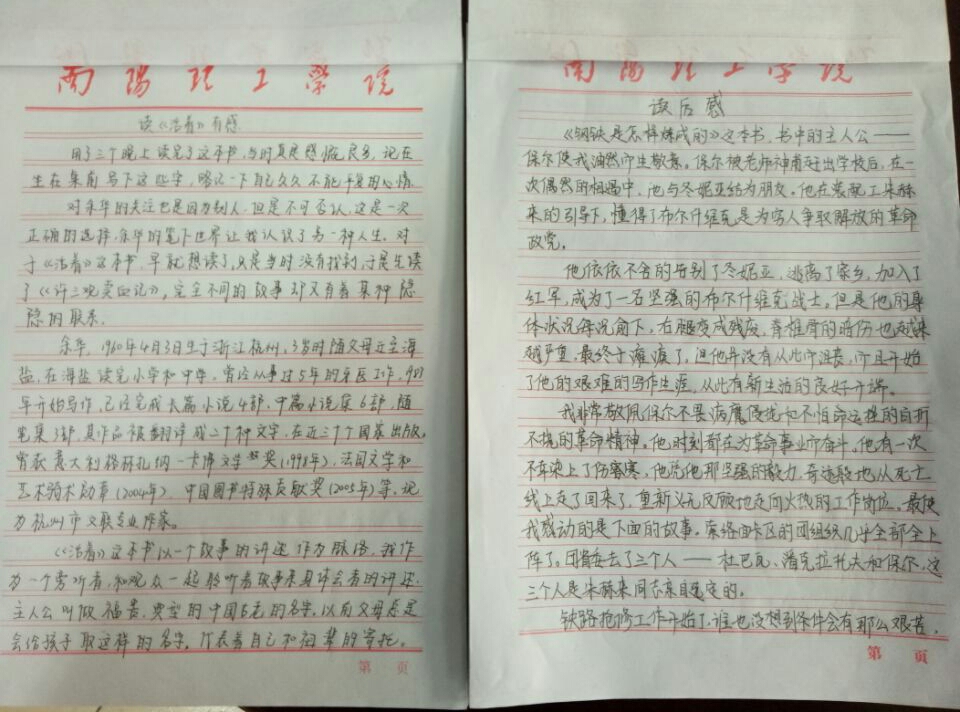 南阳理工学院
读《活着》有感
用了三个晚上读完了这本书,当时真是感慨良多,现在
坐在桌前写下这些字,略记一下自己久久不能平复的心情.
对余华的关注也是因为别人.但是不可否认,这是一次
正确的选择,余华的笔下世界让我认识了另一种人生.对
于《活着》这本书,早就想读了,只是当时没有找到,于是先读
了《许三观卖血记》,完全不同的故事却又有着某种隐
隐的联系.
余华,1960年4月3日生于浙江杭州,3岁时随父母迁至海
盐,在海盐读完小学和中学.曾经从事过5年的牙医工作,983
年开始写作,已经完成长篇小说4部.中篇小说集6部.随
笔集3部,其作品被翻译成二十种文字,在近三十个国家出版,
曾获意大利格林扎纳—卡佛文学奖(1998年),法国文学和
艺术骑术勋章(2004年),中国图书特殊贡献奖(2005年)等,现
为杭州市文联专业作家。
《活着》这本书以一个故事的讲述作为脉络,我作
为一个旁听者,和观众一起聆听着故事亲身体会者的讲述.
主人公叫做福贵,典型的中国古老的名字,以前父母总是
会给孩子取这样的名字,代表着自己和祖辈的寄托.
第 页
南阳理工学院
读后感
《钢铁是怎样炼成的》这本书,书中的主人公——
保尔使我油然而生敬意。保尔被老师神甫赶出学校后,在一
次偶然的相遇中,他与冬妮亚结为朋友。他在装配工朱赫
来的引导下,懂得了布尔什维克是为穷人争取解放的革命
政党。
他依依不舍的告别了冬妮亚,逃离了家乡,加入了
红军,成为了一名坚强的布尔什维克战士。但是他的身
体状况每况俞下,右腿变成残废,脊椎骨的暗伤也越来
越严重,最终于瘫痪了,但他并没有从此而沮丧,而且开始
了他的艰难的写作生涯,从此有新生活的良好开端。
我非常敬佩保尔不畏病魔侵扰和不怕命运挫的百折
不挠的革命精神。他时刻都在为革命事业而奋斗。他有一次
不幸染上了伤寒,他凭他那坚强的毅力,奇迹般地从死亡
线上走了回来了,重新义无反顾地走向火热的工作岗位。最使
我感动的是下面的故事。索络面卡区的团组织几乎全部全上
阵了。团省委去了三个人——杜巴瓦、潘克拉托夫和保尔,这
三个人是朱赫来同志亲自选定的。
铁路抢修工作开始了,谁也没想到条件会有那么艰苦,
第 页